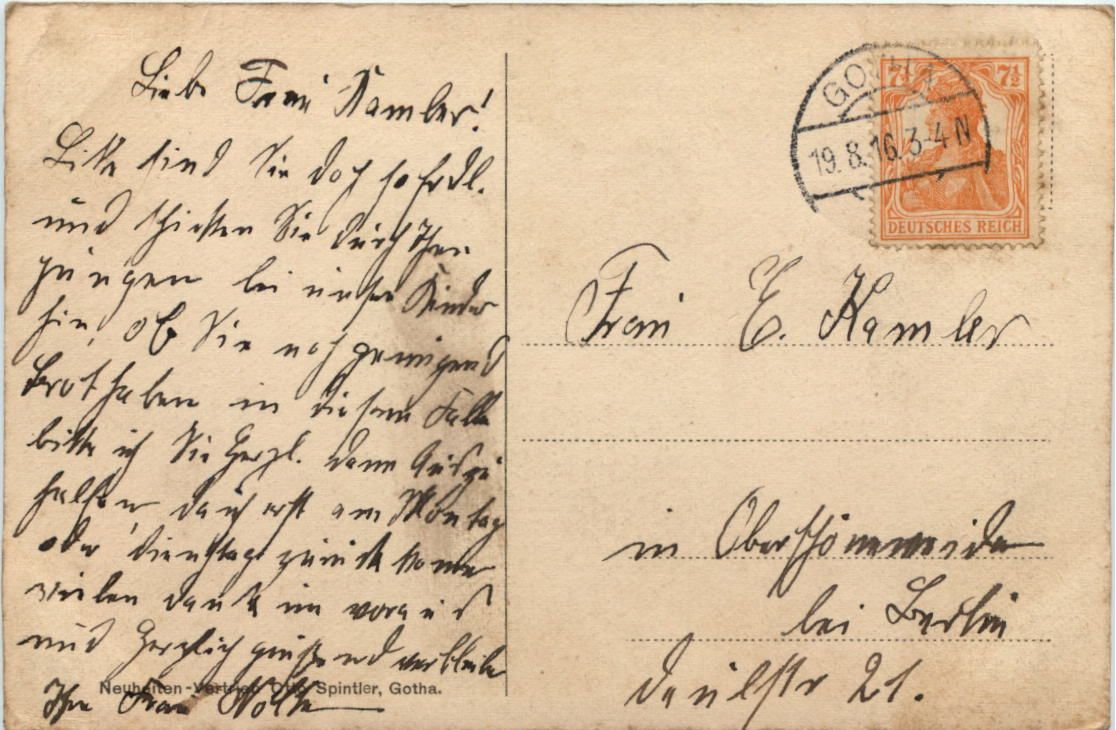 Liebe Frau Kamler!
Bitte sind Sie doch so frdl.
und schicken Sie durch Ihren
jungen bei unsre Kinder
hin, ob Sie noch genügend
Brot haben in diesem Falle
bitte ich Sie herzl. dann Auszu
helfen, da ich erst am Montag
oder dienstag zurück komme
vielen dank im voraus
und Herzlich grüßend verbleibe
Ihre Frau Nolte
Neuheiten-Vertrieb Otto Spintler, Gotha.
GOTHA
19.8.16.3-4 N
7½ 7½
DEUTSCHES REICH
Frau E. Kamler
in Oberschöneweide
bei Berlin
21.